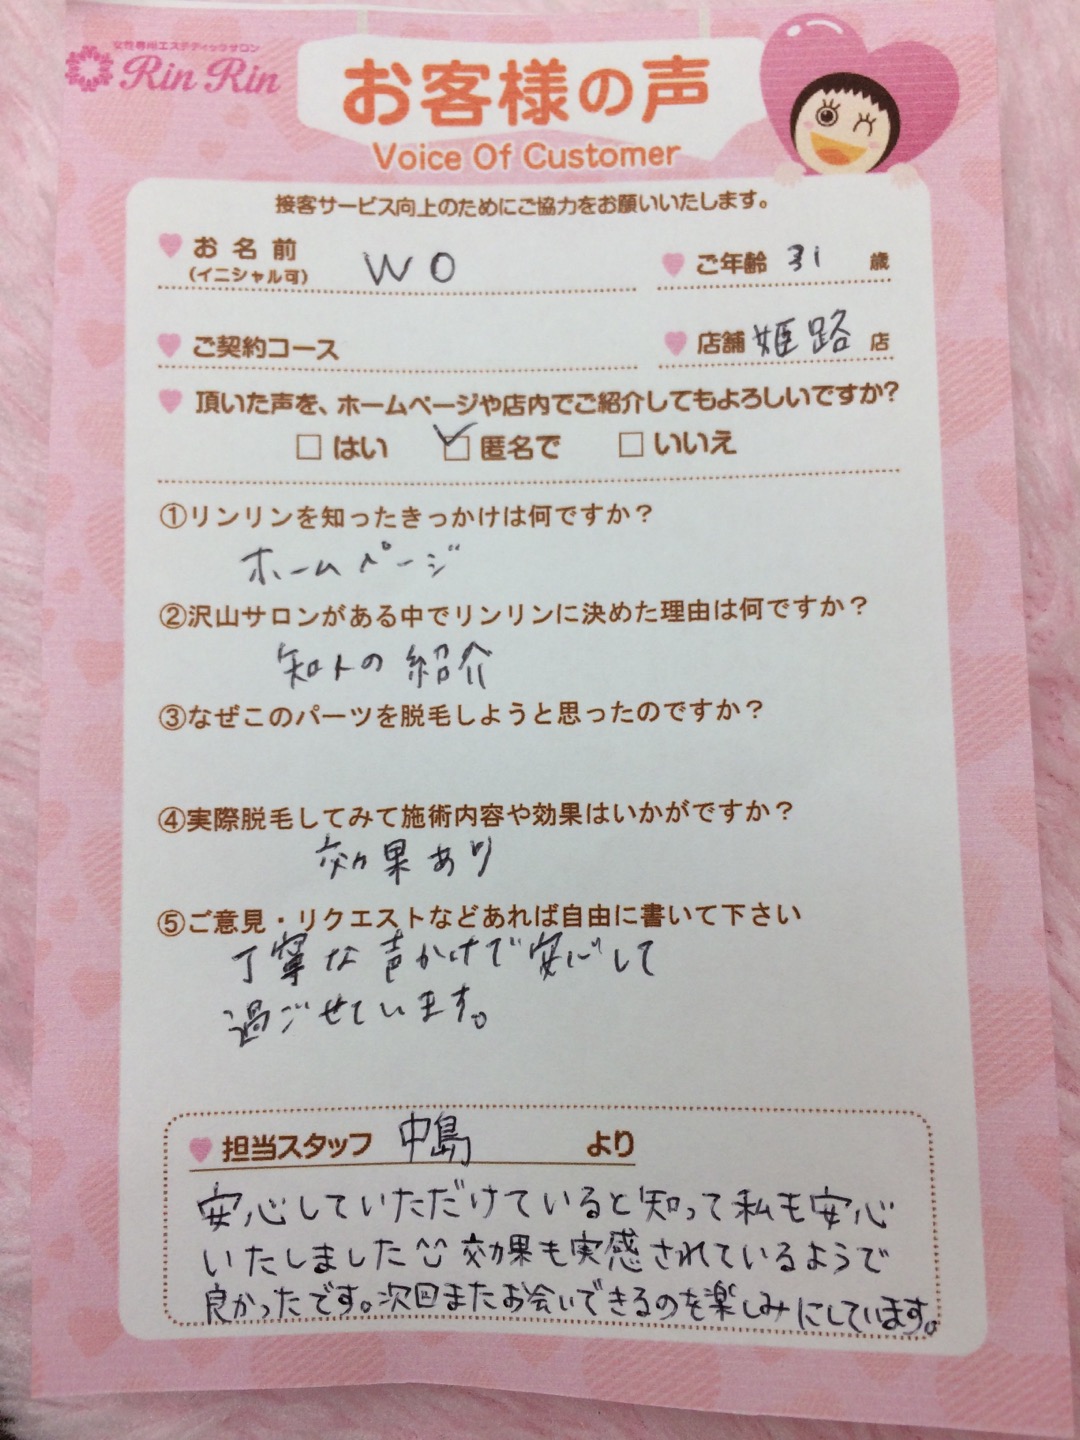 女性専用エステティックサロン
Rin Rin
お客様の声
Voice Of Customer
接客サービス向上のためにご協力をお願いいたします。
お名前 WO ご年齢 31 歳
(イニシャル可)
ご契約コース 店舗 姫路 店
頂いた声を、ホームページや店内でご紹介してもよろしいですか?
□ はい ☑ 匿名で □ いいえ
①リンリンを知ったきっかけは何ですか?
ホームページ
②沢山サロンがある中でリンリンに決めた理由は何ですか?
知人の紹介
③なぜこのパーツを脱毛しようと思ったのですか?
④実際脱毛してみて施術内容や効果はいかがですか?
効果あり
⑤ご意見・リクエストなどあれば自由に書いて下さい
丁寧な声かけで安心して
過ごせています。
担当スタッフ 中島 より
安心していただけていると知って私も安心
いたしました 効果も実感されているようで
良かったです。次回またお会いできるのを楽しみにしています。